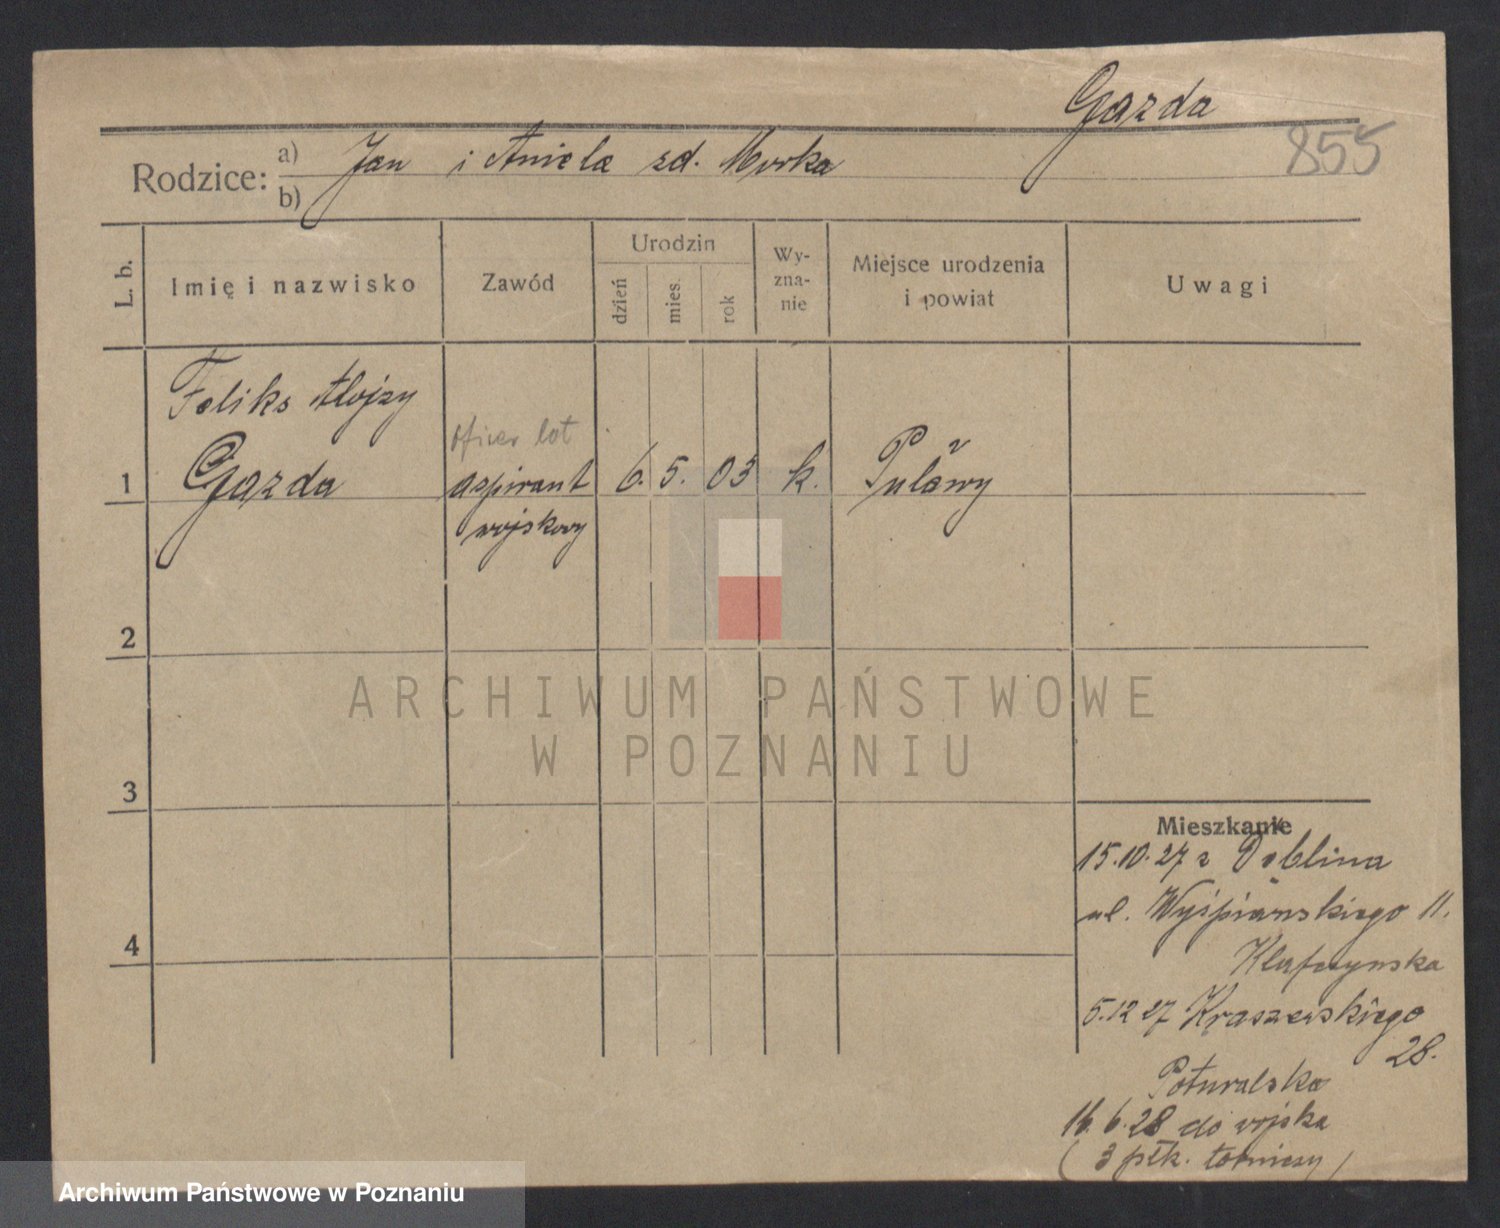 Gazda
855
Rodzice: a) Jan i Aniela zd. Murka
b)
L. b.
Imię i nazwisko
Zawód
Urodzin
dzień
mies.
rok
Wy-
zna-
nie
Miejsce urodzenia
i powiat
Uwagi
Feliks Alojzy
Gazda
oficer lot
aspirant
wojskowy
1
6. 5. 03
k.
Puławy
2
3
4
ARCHIWUM PAŃSTWOWE
W POZNANIU
Mieszkanie
15.10.27 z Dęblina
ul. Wyśpiańskiego 11.
Klafczynska
5.12 27 Kraszewskiego
28.
Poturalska
16. 6. 28 do wojska
( 3 płk. lotniczy )
Archiwum Państwowe w Poznaniu